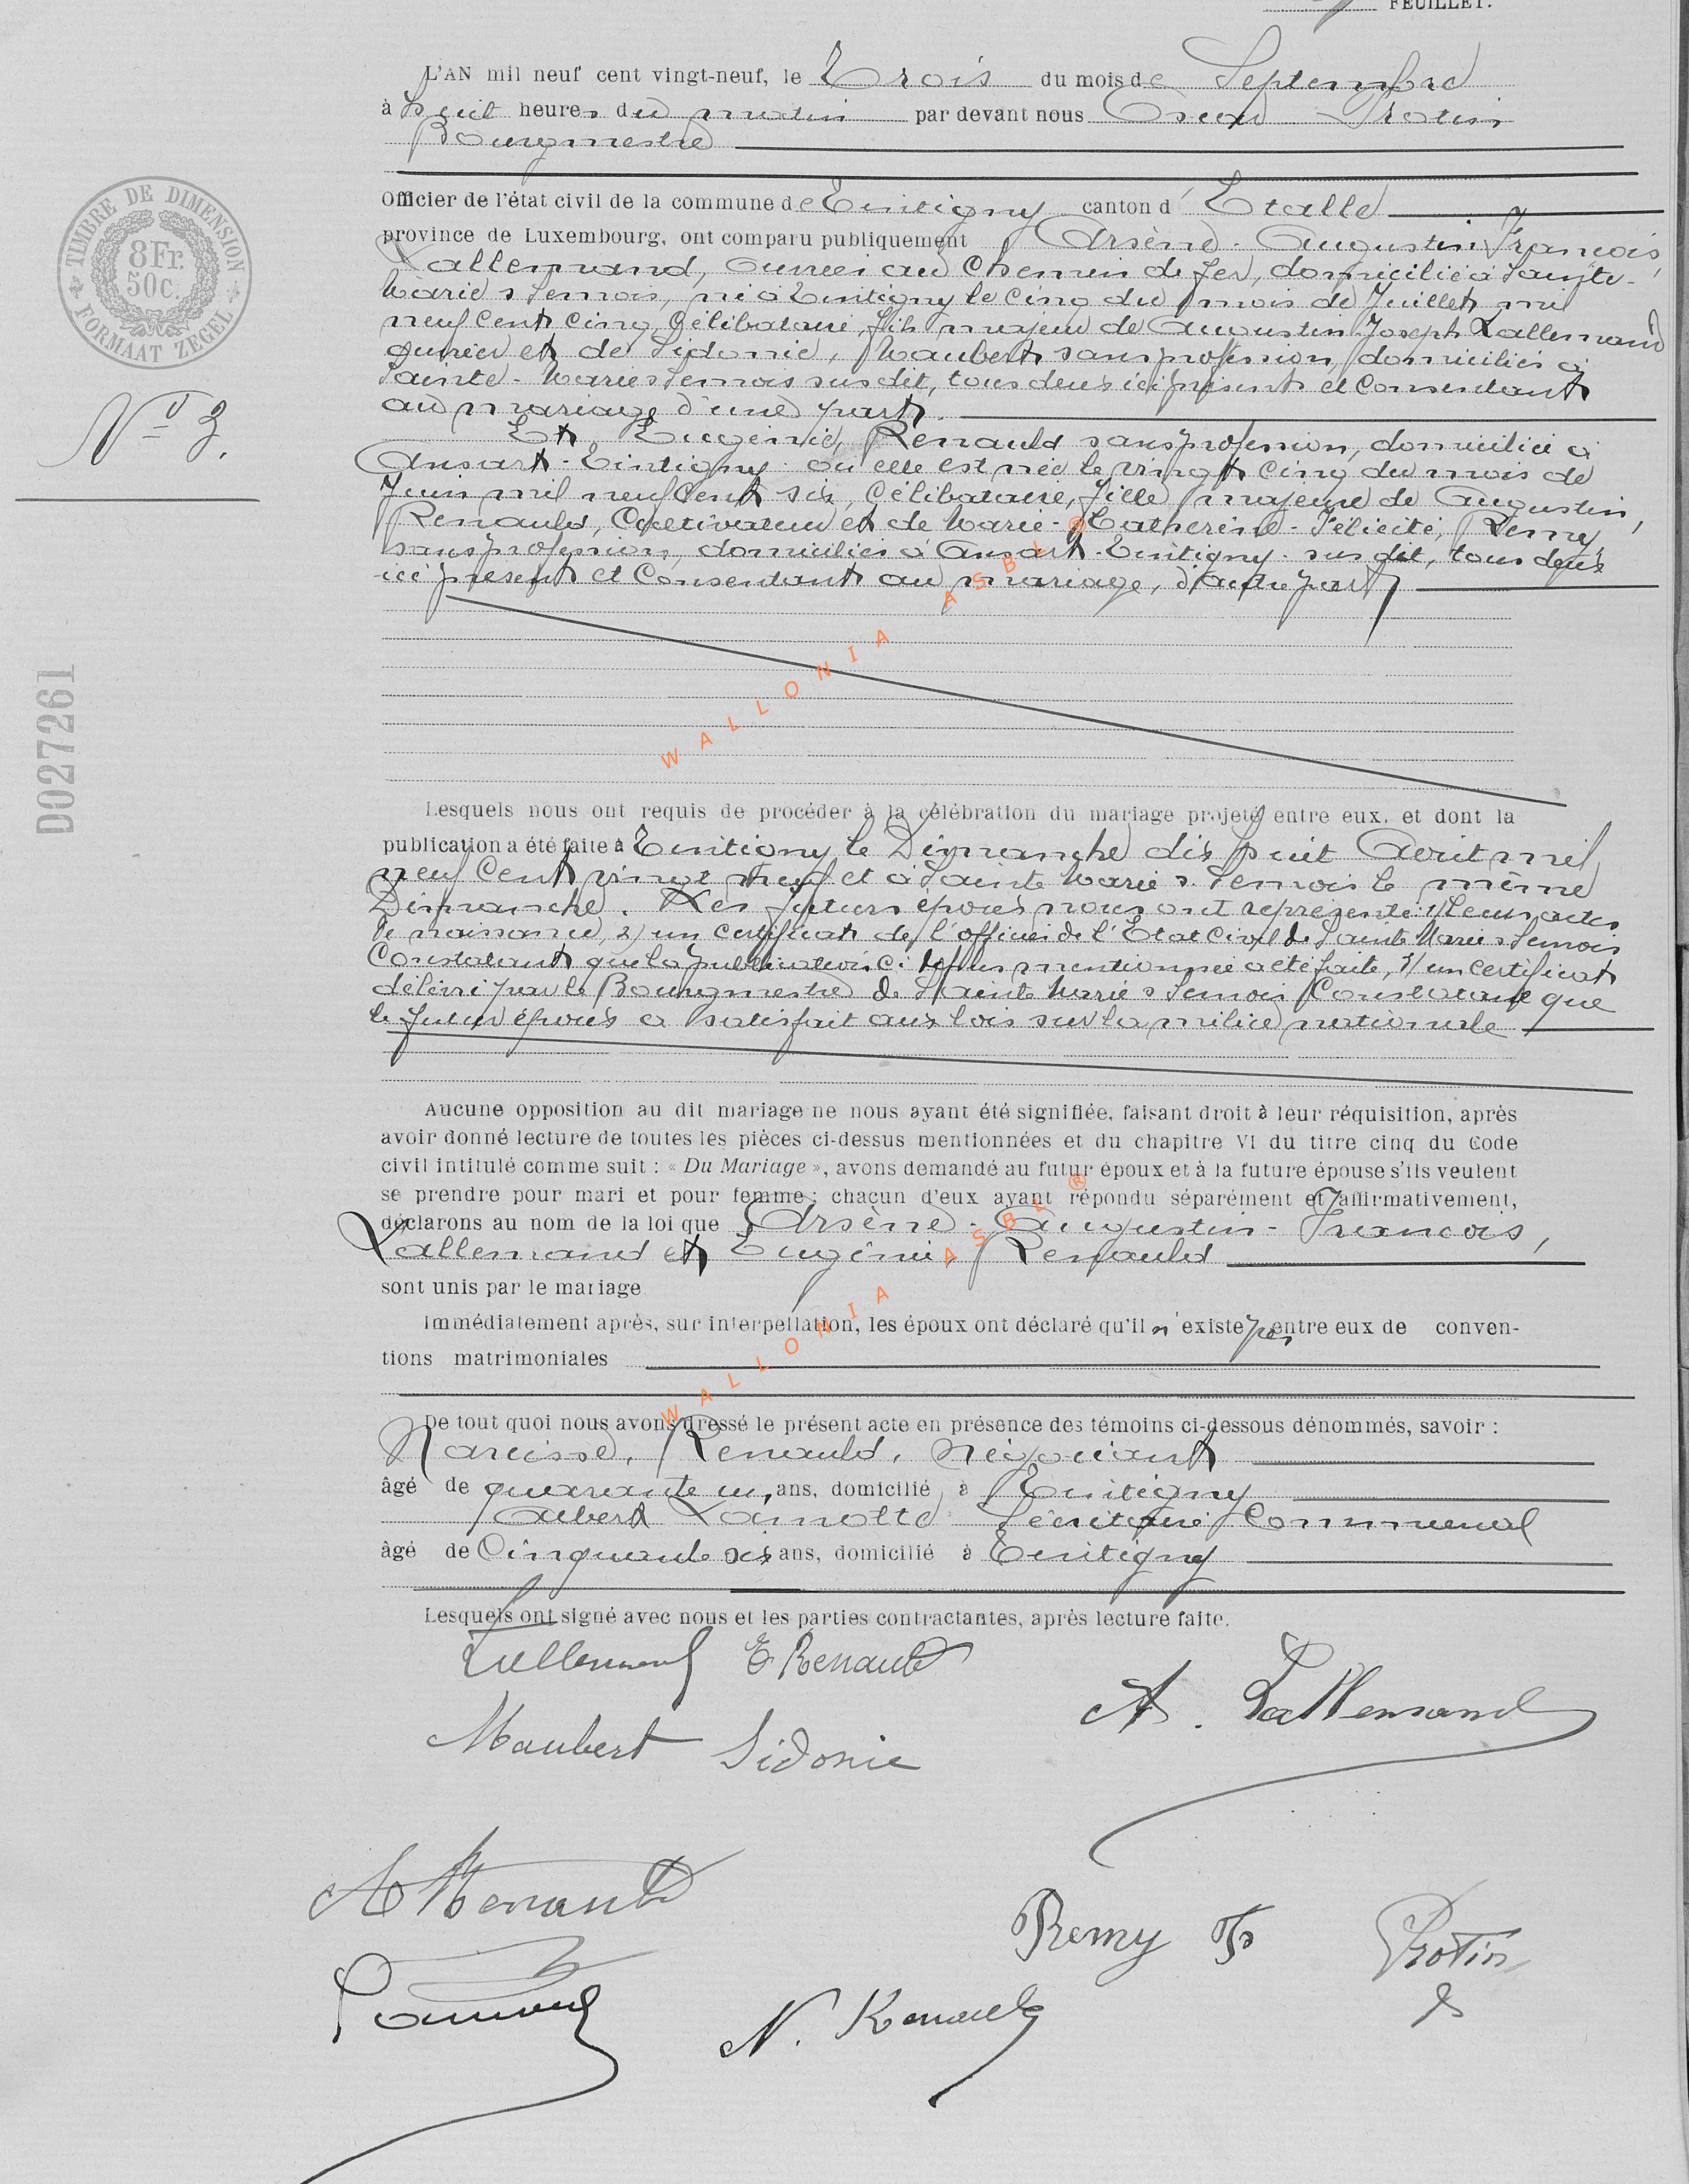 FEUILLET.
L'AN mil neuf cent vingt-neuf, le Trois du mois de Septembre
à huit heures du matin par devant nous Oscar Protin
Bourgmestre
Officier de l'état civil de la commune de Tintigny canton d' Etalle
province de Luxembourg, ont comparu publiquement Arsène-Augustin-François
Lallemand, ouvrier au Chemin de fer, domicilié à Sainte-
Marie s/ Semois, né à Tintigny le cinq du mois de Juillet mil
neuf cent cinq, Célibataire, fils majeur de Augustin Joseph Lallemand
ouvrier et de Sidonie, Maubert sans profession, domiciliés à
Sainte-Marie s/ Semois susdit, tous deux ici présents et Consentant
au mariage d'une part.
Et Eugénie, Renauld sans profession, domiciliée à
Ansart-Tintigny où elle est née le vingt cinq du mois de
Juin mil neuf Cent six, Célibataire, fille majeure de Augustin,
Renauld, Cultivateur et de Marie-Catherine-Félicité, Remy,
sans profession, domiciliés à Ansart-Tintigny susdit, tous deux
ici présents et Consentant au mariage, d'autre part
TIMBRE DE DIMENSION
8 Fr.
50 c.
FORMAAT ZEGEL
N° 3.
D027261
WALLONIA ASBL ®
Lesquels nous ont requis de procéder à la célébration du mariage projeté entre eux, et dont la
publication a été faite à Tintigny le Dimanche dix huit Août mil
neuf Cent vingt neuf et à Sainte Marie s/ Semois le même
Dimanche. Les futurs époux nous ont représenté: 1/ leurs actes
de naissance, 2/ un certificat de l'officier de l'Etat Civil de Sainte Marie s/ Semois
Constatant que la publication ci-dessus mentionnée a été faite, 3/ un certificat
délivré par le Bourgmestre de Sainte Marie s/ Semois Constatant que
le futur époux a satisfait aux lois sur la milice nationale
Aucune opposition au dit mariage ne nous ayant été signifiée, faisant droit à leur réquisition, après
avoir donné lecture de toutes les pièces ci-dessus mentionnées et du chapitre VI du titre cinq du Code
civil intitulé comme suit : « Du Mariage », avons demandé au futur époux et à la future épouse s'ils veulent
se prendre pour mari et pour femme ; chacun d'eux ayant répondu séparément et affirmativement,
déclarons au nom de la loi que Arsène-Augustin-François,
Lallemand et Eugénie, Renauld
sont unis par le mariage
Immédiatement après, sur interpellation, les époux ont déclaré qu'il n'existe pas entre eux de conven-
tions matrimoniales
WALLONIA ASBL ®
De tout quoi nous avons dressé le présent acte en présence des témoins ci-dessous dénommés, savoir :
Narcisse, Renauld, Négociant
âgé de quarante un, ans, domicilié à Tintigny
Albert Lamotte Secrétaire Communal
âgé de Cinquante six ans, domicilié à Tintigny
Lesquels ont signé avec nous et les parties contractantes, après lecture faite.
Lallemand E Renauld
A. Lallemand
Maubert Sidonie
A Renauld
Remy F Protin
N. Renauld